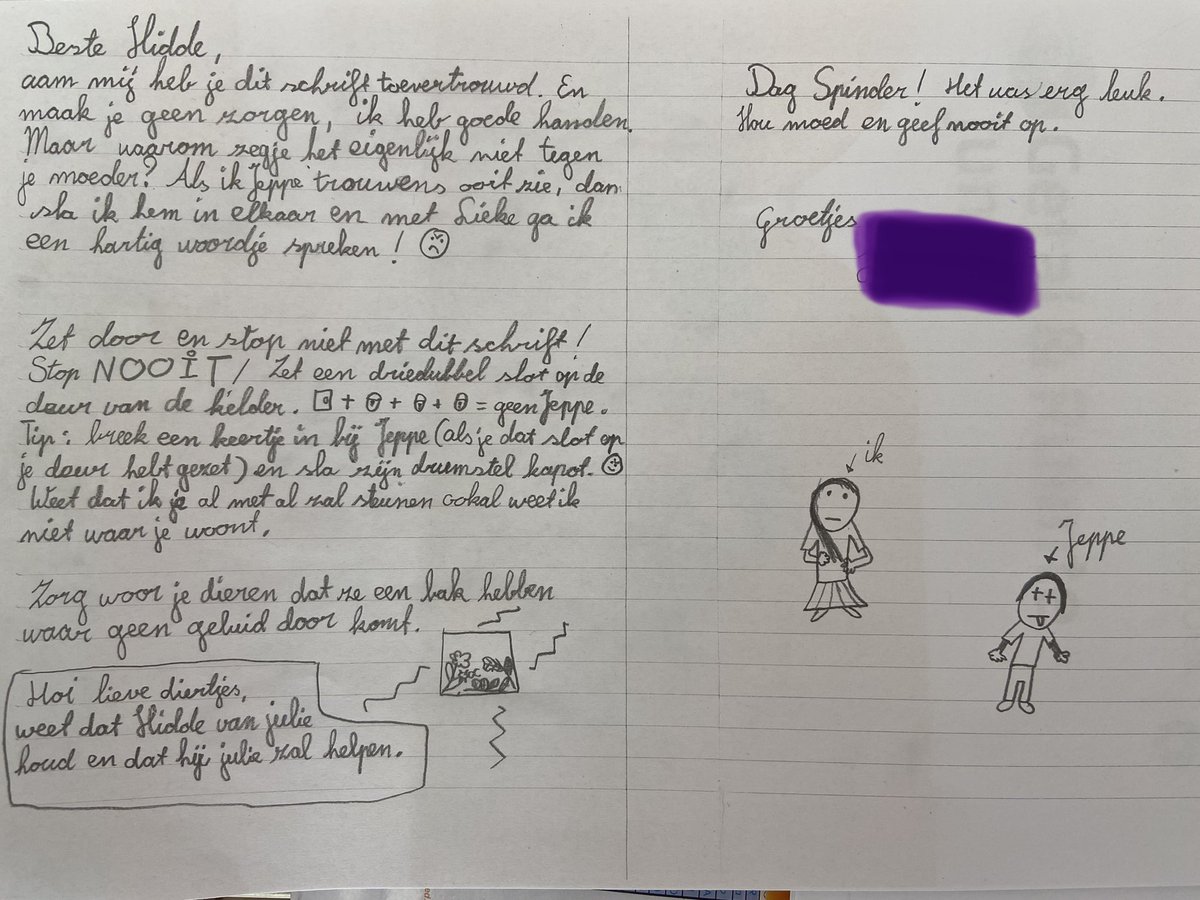 Beste Hidde,
aam mij heb je dit schrift toevertrouwd. En
maak je geen zorgen, ik heb goede handen.
Maar waarom zeg je het eigenlijk niet tegen
je moeder? Als ik Jeppe trouwens ooit zie, dan
sla ik hem in elkaar en met Lieke ga ik
een hartig woordje spreken!
Zet door en stop niet met dit schrift!
Stop NOOIT! Zet een driedubbel slot op de
deur van de kelder. + + + = geen Jeppe.
Tip: breek een keertje in bij Jeppe (als je dat slot op
je deur hebt gezet) en sla zijn drumstel kapot.
Weet dat ik je al met al zal steunen ookal weet ik
niet waar je woont.
Zorg voor je dieren dat ze een bak hebben
waar geen geluid door komt.
Hoi lieve diertjes,
weet dat Hidde van julie
houd en dat hij julie zal helpen.
Dag Spinder! Het was erg leuk.
Hou moed en geef nooit op.
Groetjes
ik
Jeppe